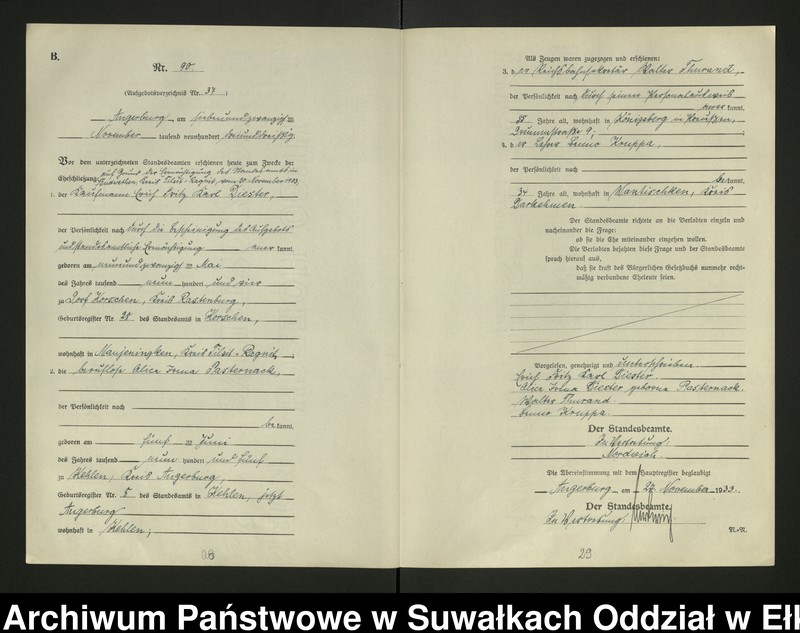 B.
Nr. 90.
(Aufgebotsverzeichnis Nr. 37)
Angerburg, am siebenundzwanzigsten
November tausend neunhundert dreiunddreißig.
Vor dem unterzeichneten Standesbeamten erschienen heute zum Zwecke der
auf Grund der Ermächtigung des Standesamts in
Eheschließung: Kreis Tilsit-Ragnit, vom 20. November 1933
1. der Kaufmann Erich Fritz Karl Diester,
der Persönlichkeit nach durch die Bescheinigung des Aufgebots
und standesamtliche Ermächtigung anerkannt,
geboren am neunundzwanzigsten Mai
des Jahres tausend neunhundert und vier
zu Dorf Korschen, Kreis Rastenburg,
Geburtsregister Nr. 28 des Standesamts in Korschen,
wohnhaft in Maujeningken, Kreis Tilsit-Ragnit;
2. die berufslose Alice Irma Pasternack,
der Persönlichkeit nach
bekannt,
geboren am fünften Juni
des Jahres tausend neunhundert und fünf
zu Kehlen, Kreis Angerburg
Geburtsregister Nr. 8 des Standesamts in Kehlen, jetzt
Angerburg
wohnhaft in Kehlen;
28
Als Zeugen waren zugezogen und erschienen:
3. der Reichsbahnsekretär Walter Thurand,
der Persönlichkeit nach durch seinen Personalausweis
anerkannt,
38 Jahre alt, wohnhaft in Königsberg in Preußen,
9;
4. der Lehrer Bruno Kruppa,
der Persönlichkeit nach
bekannt,
34 Jahre alt, wohnhaft in Wantischken, Kreis
Darkehmen.
Der Standesbeamte richtete an die Verlobten einzeln und
nacheinander die Frage:
ob sie die Ehe miteinander eingehen wollen.
Die Verlobten bejahten diese Frage und der Standesbeamte
sprach hierauf aus,
daß sie kraft des Bürgerlichen Gesetzbuchs nunmehr recht-
mäßig verbundene Eheleute seien.
Vorgelesen, genehmigt und unterschrieben.
Erich Fritz Karl Diester.
Alice Irma Diester geborene Pasternack.
Walter Thurand.
Bruno Kruppa.
Der Standesbeamte.
In Vertretung:
Nordwich.
Die Übereinstimmung mit dem Hauptregister beglaubigt
Angerburg, am 27. November 1933.
Der Standesbeamte.
In Vertretung:
N.-N.
29
Archiwum Państwowe w Suwałkach Oddział w Ełk